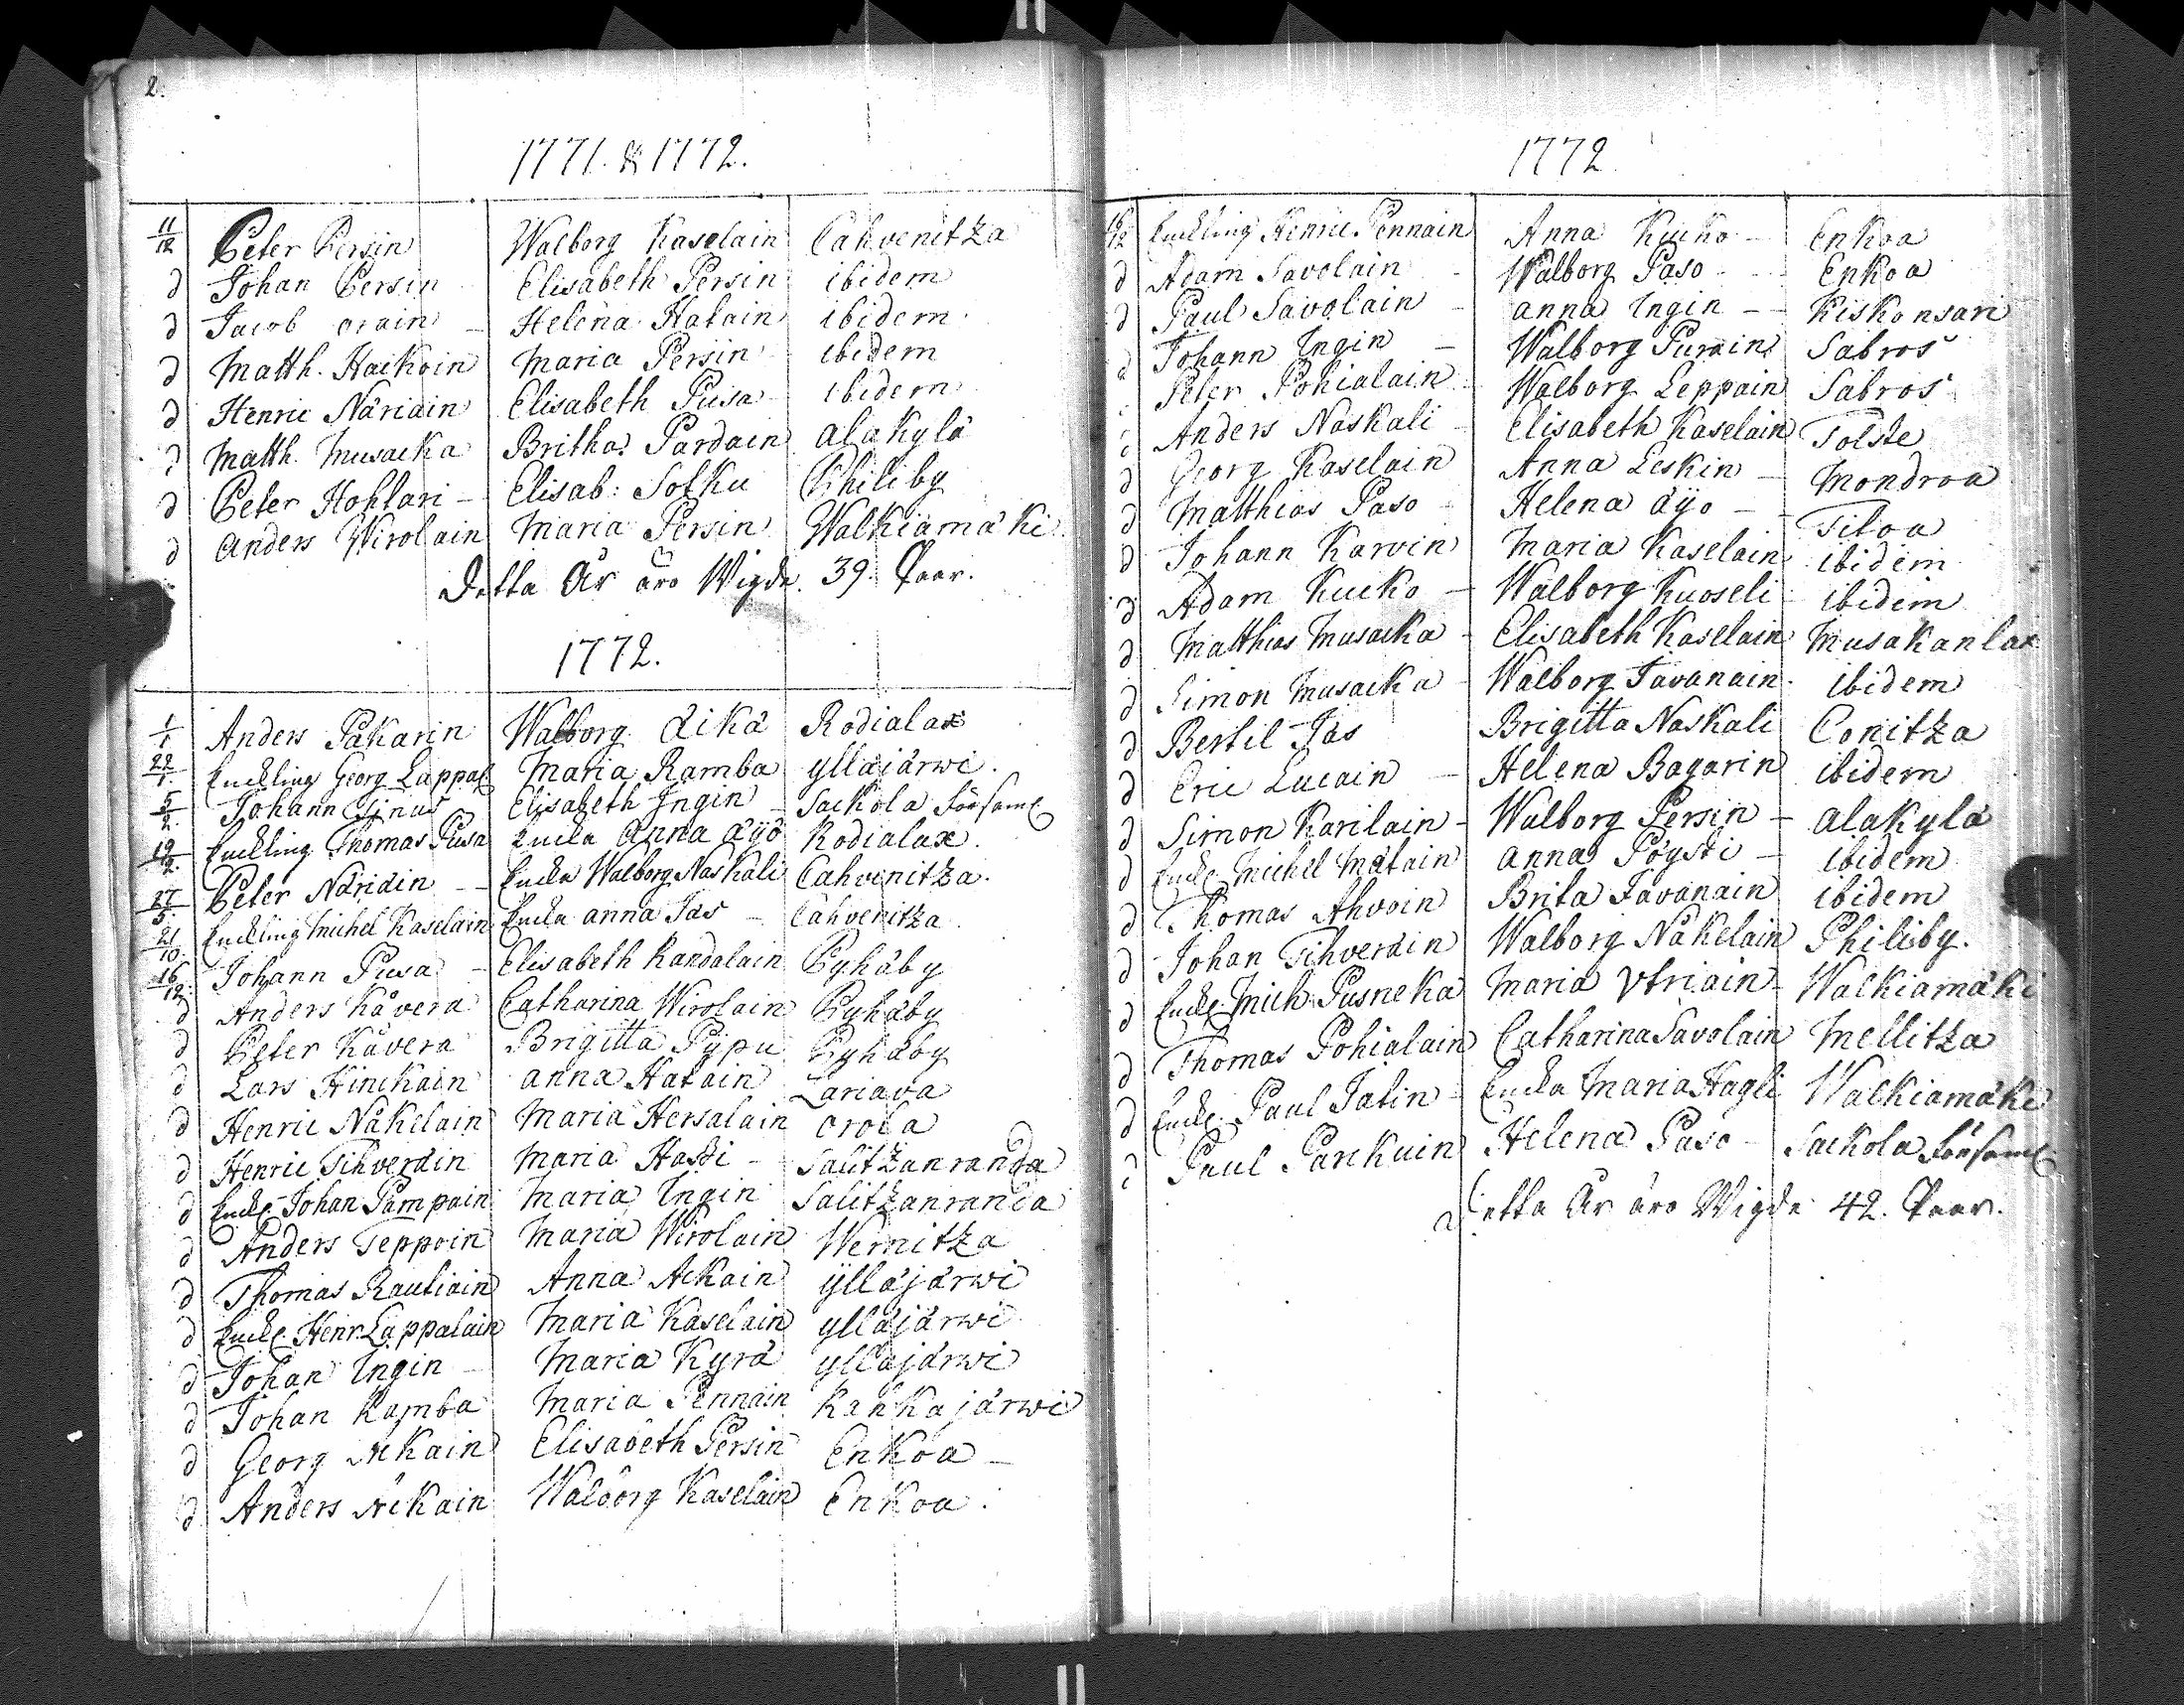 2.
1771. & 1772.
11/12 Peter Persin Walborg Kaselain Cahvenitza
d Johan Persin Elisabeth Persin ibidem
d Jacob orain Helena Hatain ibidem
d Matth. Hackoin Maria Persin ibidem
d Henric Näriäin Elisabeth Pusa ibidem
d Matth. Musacka Britha Pardain alakylä
d Peter Hohlari Elisab: Solku Philiby
d Anders Wirolain Maria Persin Walkiamäki
Detta År äro Wigde 39. Paar.
1772.
1/1 Anders Pakarin Walborg Äikä Rodialax
22/1 Enckling Georg Lappal Maria Ramba yllajärwi.
5/2. Johann Sinus Elisabeth Ingin Sackola Församl
19/2. Enckling Thomas Pusa Encka Anna äyö Rodialax.
Peter Näriäin Encka Walborg Naskali Cahvenitza.
27/5. Enckling Michel Kaselain Encka anna Jäs Cahvenitza
21/10. Johann Pusa Elisabeth Kandalain Pyhäby
16/12. Anders Kävera Catharina Wirolain Pyhäby
d Peter Kävera Brigitta Pypu Pyhäby
d Lars Hinckain anna Hatain Lariava
d Henric Näkelain Maria Hersalain orola
d Henric Tihveräin Maria Haski Salitzanranda
d Enckl. Johan Pampain Maria Ingin Salitzanranda
d Anders Teppoin Maria Wirolain Wernitza
d Thomas Rautiain Anna Ackain ylläjärwi
d Enckl. Henr. Lappalain Maria Kaselain ylläjärwi
d Johan Ingin Maria Kyrä ylläjärwi
d Johan Ramba Maria Pennain Kaukajärwi
d Georg Ackain Elisabeth Persin Enkoa
d Anders Ackain Walborg Kaselain Enkoa.
1772
16/12 Enckling Henric Pennain Anna Kucko Enkoa
d Adam Savolain Walborg Paso Enkoa
d Paul Savolain anna Ingin Kiskonsari
d Johann Ingin Walborg Purain Sabros
Peter Pohialain Walborg Leppain Sabros
Anders Naskali Elisabeth Kaselain Tolste
d Georg Kaselain Anna Leskin Mondroa
d Matthias Paso Helena äyö Titoa
d Johann Karvin Maria Kaselain ibidem
d Adam Kucko Walborg Kuoseli ibidem
d Matthias Musacka Elisabeth Kaselain Musakanlax
d Simon Musacka Walborg Tavanain ibidem
d Bertil Jäs Brigitta Naskali Conitza
d Eric Lucain Helena Bagarin ibidem
d Simon Karilain Walborg Persin alakylä
d Enckl. Michel Mätain anna Pöysti ibidem
d Thomas Ahvoin Brita Tavanain ibidem
d Johan Tihveräin Walborg Näkelain Philiby.
d Enckl. Mich. Pusneka Maria Utriain Walkiamäki
d Thomas Pohialain Catharina Savolain Mellitza
d Enckl. Paul Jatin Encka Maria Hagli Walkiamäki
Paul Parckuin Helena Paso Sackola Församl
Detta År äro Wigde 42. Paar.